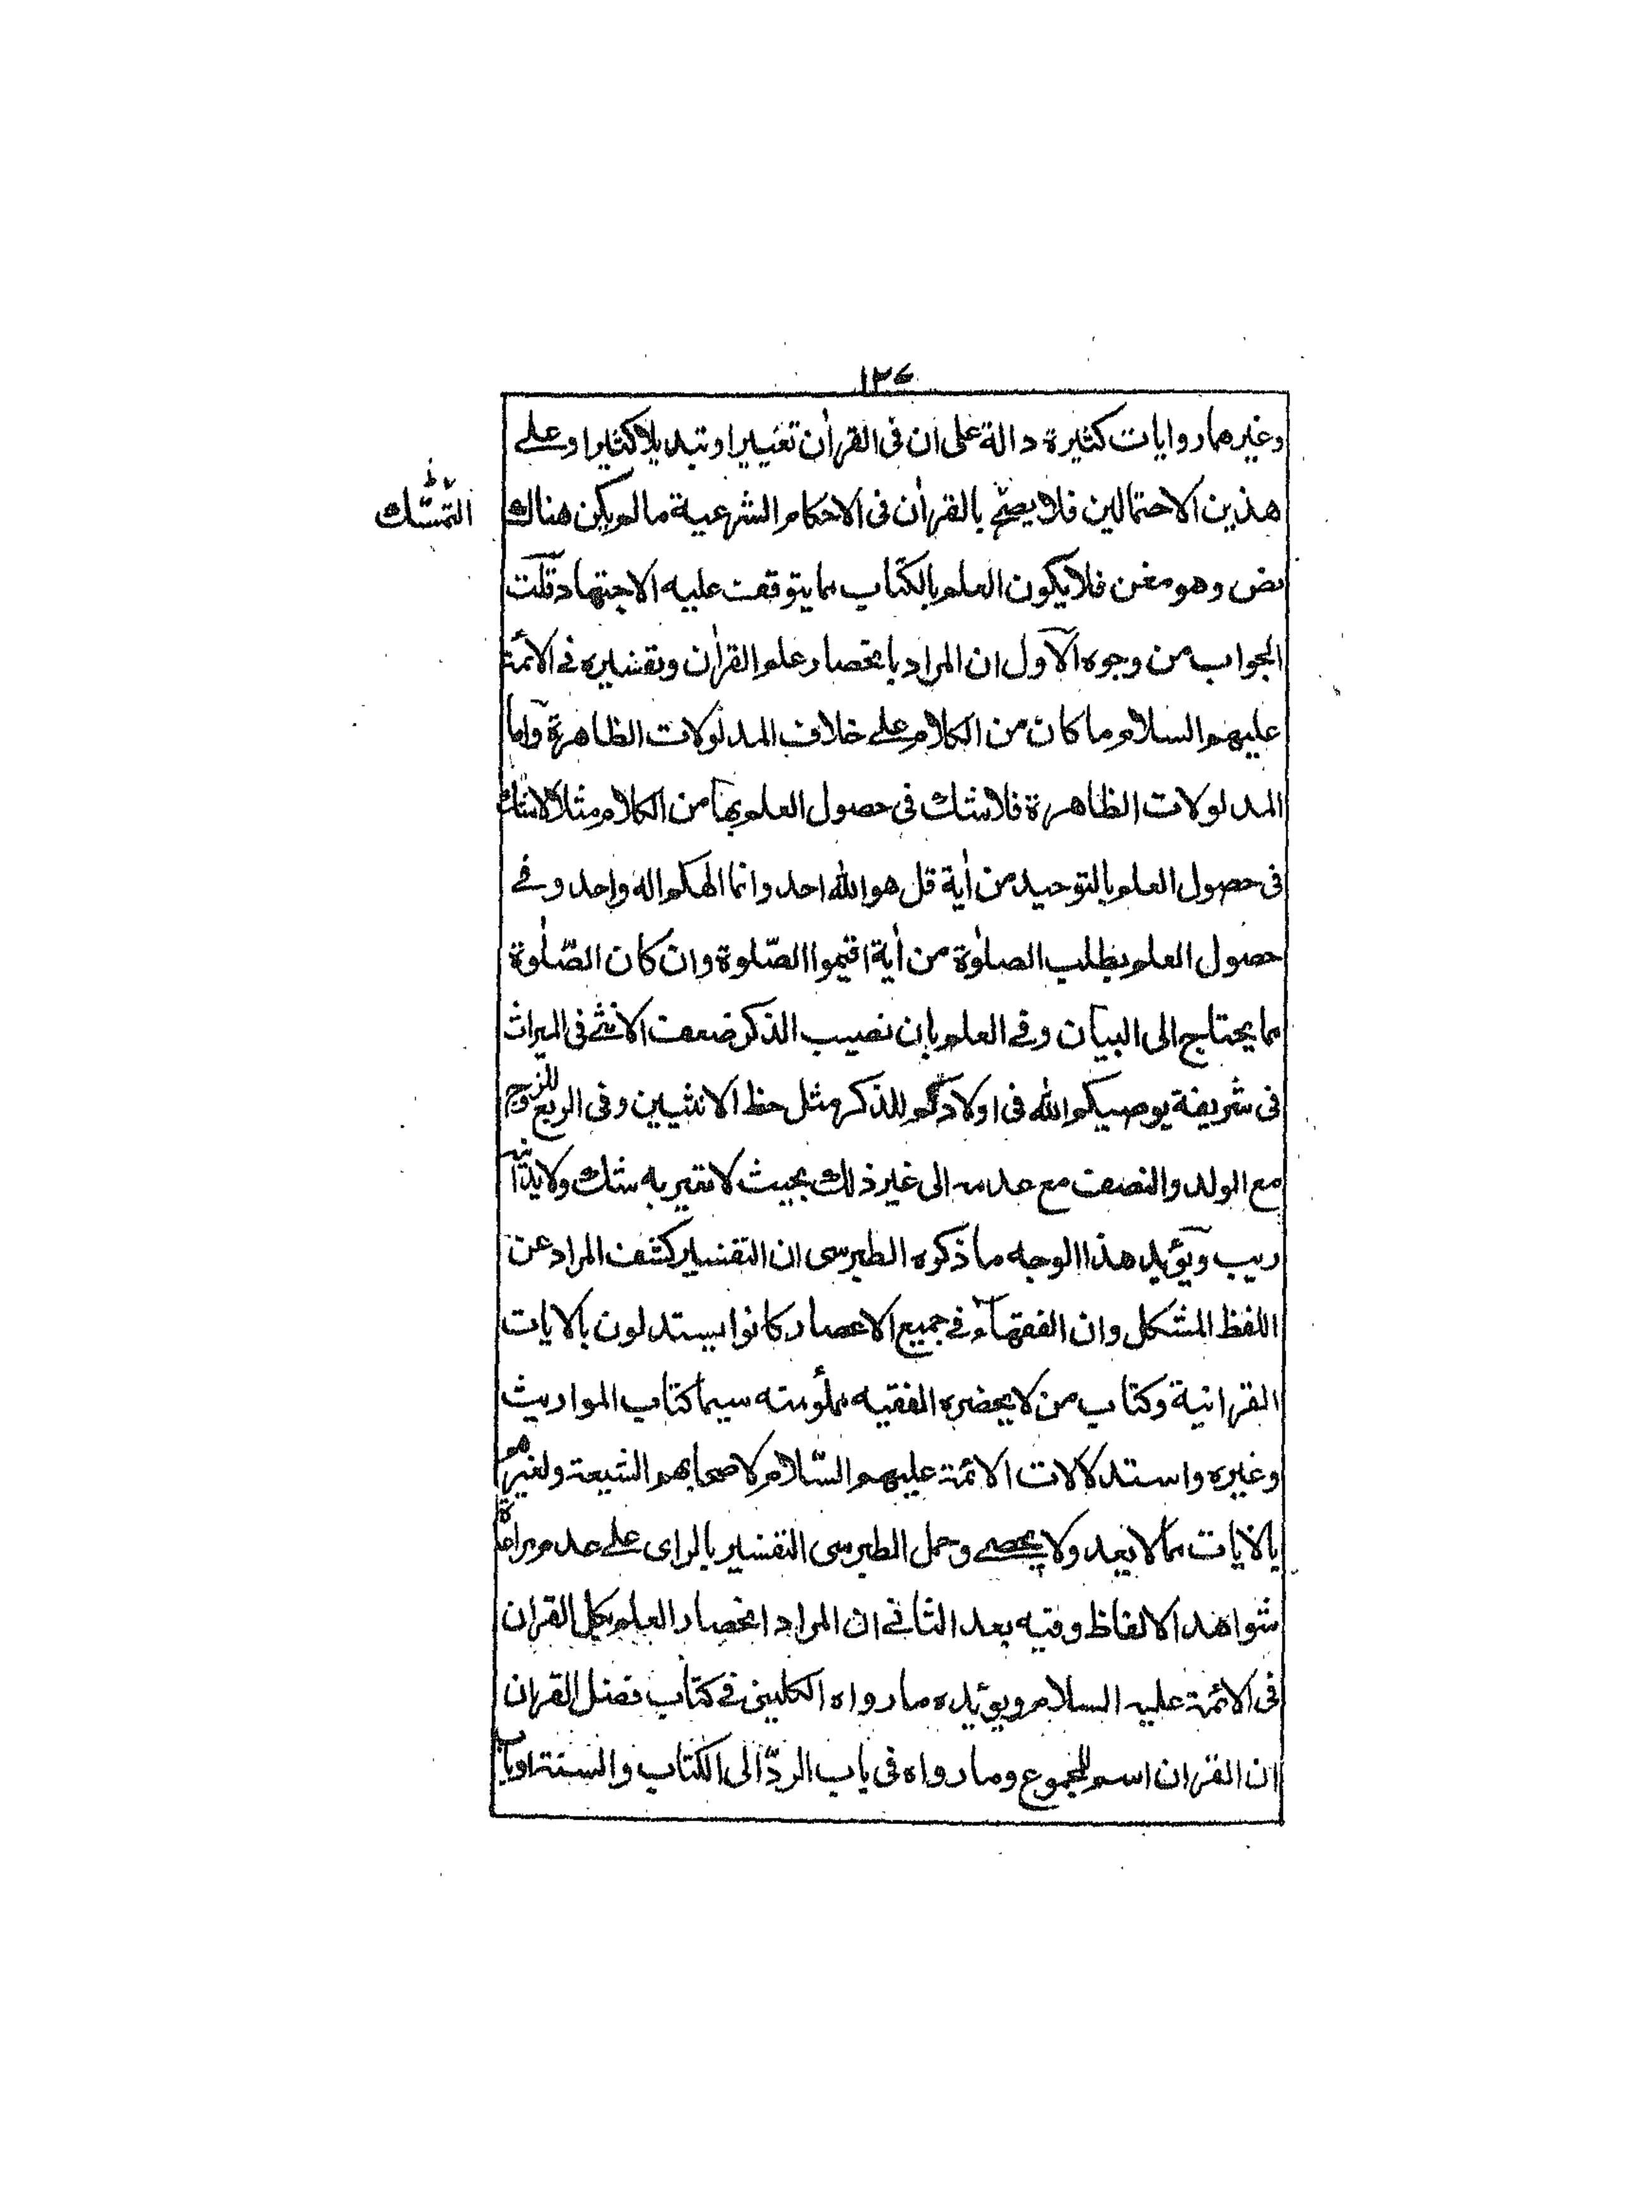 ١٢٧
وغيرهما روايات كثيرة دالة على ان فى القرأن تغييرا وتبديلا كثيرا وعلے
هذين الاحتمالين فلا يصحّ بالقرأن فى الاحكام الشرعية مالم يكن هناك
التمسّك
نص وهو مغن فلا يكون العلم بالكتاب مما يتوقف عليه الاجتهاد قلت
الجواب من وجوه الاول ان المراد بانحصار علم القرأن وتفسيره فے الائمة
عليهم السلام ما كان من الكلام علے خلاف المدلولات الظاهرة واما
المدلولات الظاهرة فلا شك فى حصول العلم بها من الكلام مثلا لا شك
فى حصول العلم بالتوحيد من أية قل هو الله احد وانما الهكم اله واحد وفے
حصول العلم بطلب الصلوٰة من أية اقيموا الصّلوة وان كان الصّلوٰة
مما يحتاج الى البيان وفے العلم بان نصيب الذكر ضعف الانثے فى الميراث
فى شريفة يوصيكم الله فى اولادكم للذكر مثل حظ الانثيين وفى الربع للزوج
مع الولد والنصف مع عدمه الى غير ذلك بحيث لا تعتريه شك ولا يدانيه
ريب ويؤيد هذا الوجه ما ذكره الطبرسى ان التفسير كشف المراد عن
اللفظ المشكل وان الفقهاء فے جميع الاعصار كانوا يستدلون بالايات
القرانية وكتاب من لا يحضره الفقيه مملو منه سيما كتاب المواريث
وغيره واستدلالات الائمة عليهم السّلام لاصحابهم الشيعة ولغيرهم
بالايات مما لا يعد ولا يحصے وحمل الطبرسى التفسير بالراى علے عدم مراعاة
شواهد الالفاظ وفيه بعد الثانے ان المراد انحصار العلم بكل القران
فى الائمة عليه السلام ويؤيده ما رواه الكلينى فے كتاب فضل القران
ان القران اسم للمجموع وما رواه فى باب الردّ الى الكتاب والسنة او باب